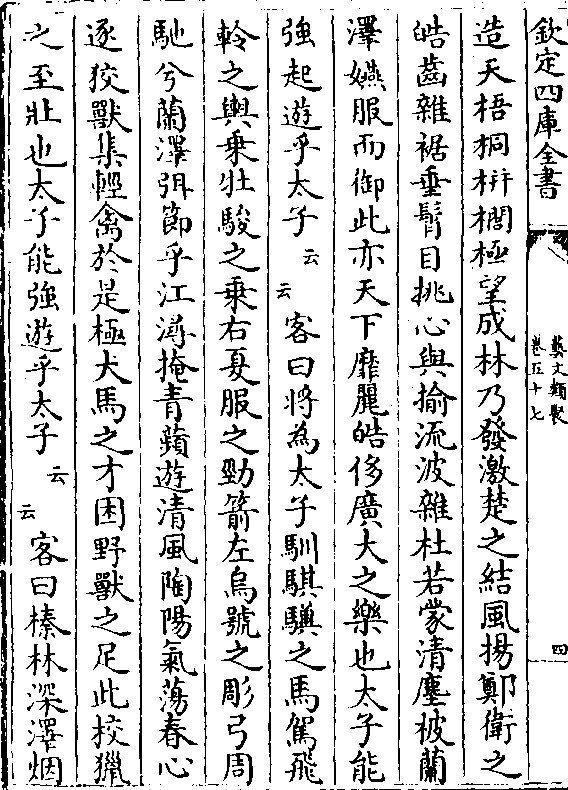 欽定四庫全書
藝文類聚
卷五十七
四
造天梧桐栟櫚極望成林乃發激楚之結風揚鄭衛之
皓齒雜裾垂髾目挑心與揄流波雜杜若蒙清塵披蘭
澤嬿服而御此亦天下靡麗皓侈廣大之樂也太子能
強起遊乎太子云云客曰將為太子馴騏驥之馬駕飛
軨之輿乗壯駿之乗右夏服之勁箭左烏號之彫弓周
馳兮蘭澤弭節乎江潯掩青蘋遊清風陶陽氣蕩春心
逐狡獸集輕禽於是極犬馬之才困野獸之足此校獵
之至壯也太子能強遊乎太子云云客曰榛林深澤烟